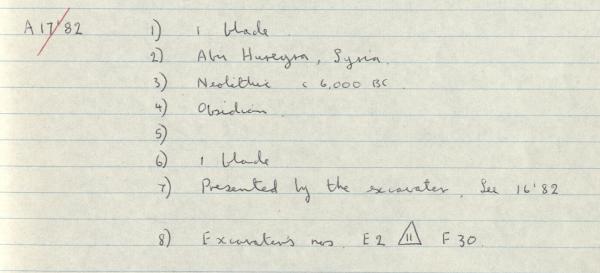 A 17'82 1) 1 blade
2) Abu Hureyra, Syria.
3) Neolithic c 6,000 BC.
4) Obsidian.
5)
6) 1 blade
7) Presented by the excavator. See 16'82
8) Excavator's nos. E2 11 F30.